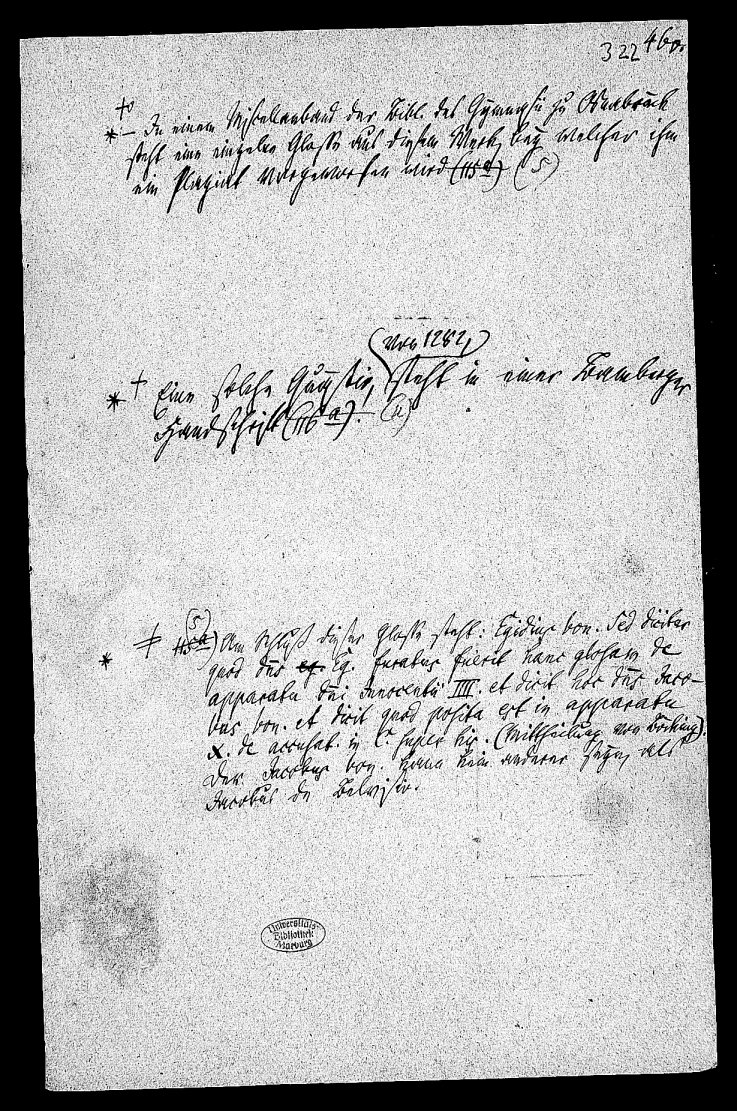 322 460.
In einem Miscellanband der Bibl. des Gymnasii zu Osnabrück
steht eine einzelne Glosse aus diesem Werk, bey welcher ihm
ein Plagiat vorgeworfen wird (115a) (5)
(von 1282)
* + Eine solche Quaestio, steht in einer Bamberger
Handschrift (116a). (a)
(5)
* 115a) Am Schluß dieser Glosse steht: Egidius bon. Sed dicitur
quod dns eg. Eg. furatus fuerit hanc glosam de
apparatu dni Innocentii IIII. et dicit hoc dns Jaco-
bus bon. et dicit quod posita est in apparatu
X. de accusat. in C. super his. (Mittheilung von Böcking).
Der Jacobus bon. kann kein anderer seyn, als
Jacobus de Belvisio.
Universitäts-
Bibliothek
Marburg